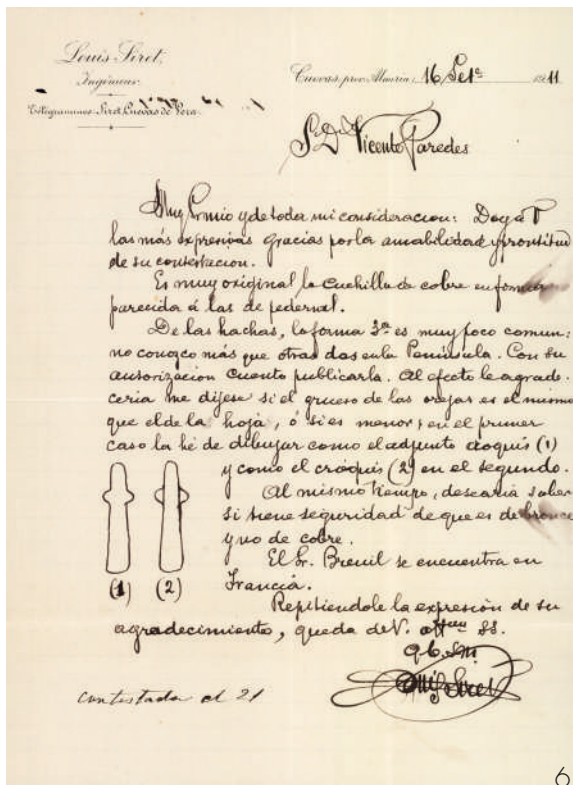 Louis Siret,
Ingénieur.
Telegrammes: Siret, Cuevas de Vera.
Cuevas, prov. Almeria, 16 Set.e 1911
Sr. Dn. Vicente Paredes
Muy Sr. mio y de toda mi consideracion: Doy a V
las más expresivas gracias por la amabilidad y prontitud
de su contestacion.
Es muy original la cuchilla de cobre en forma
parecida á las de pedernal.
De las hachas, la forma 3ª es muy poco comun:
no conozco más que otras dos en la Península. Con su
autorizacion cuento publicarla. Al efecto le agrade-
ceria me dijese si el grueso de las orejas es el mismo
que el de la hoja, ó si es menor; en el primer
caso la hé de dibujar como el adjunto croquis (1)
y como el cróquis (2) en el segundo.
Al mismo tiempo, desearia saber
si tiene seguridad de que es de bronce
y no de cobre.
El Sr. Breuil se encuentra en
Francia.
(1) (2)
Repitiendole la expresión de su
agradecimiento, queda de V. attmo SS.
q b. s m.
Louis Siret
contestada el 21
6